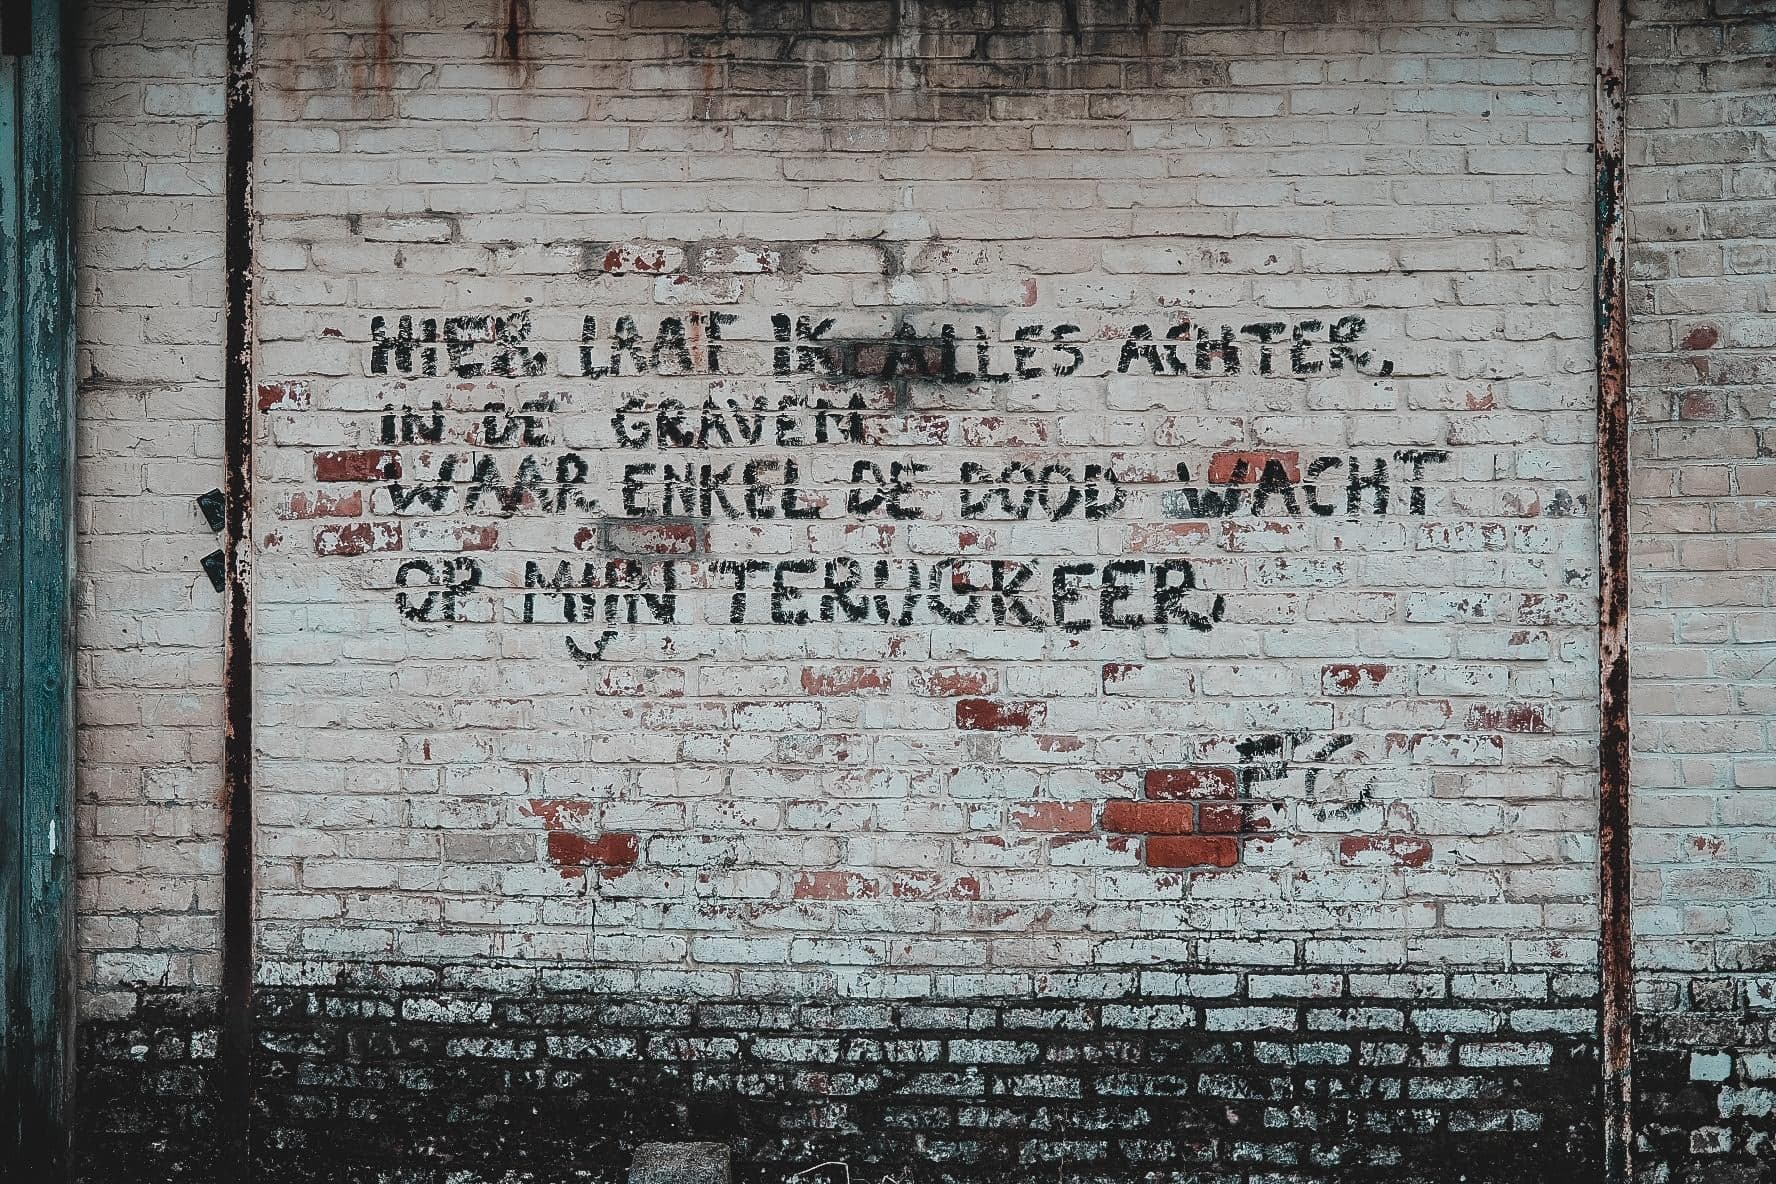 HIER LAAT IK ALLES ACHTER,
IN DE GRAVEN
WAAR ENKEL DE DOOD WACHT
OP MIJN TERUGKEER,
FG